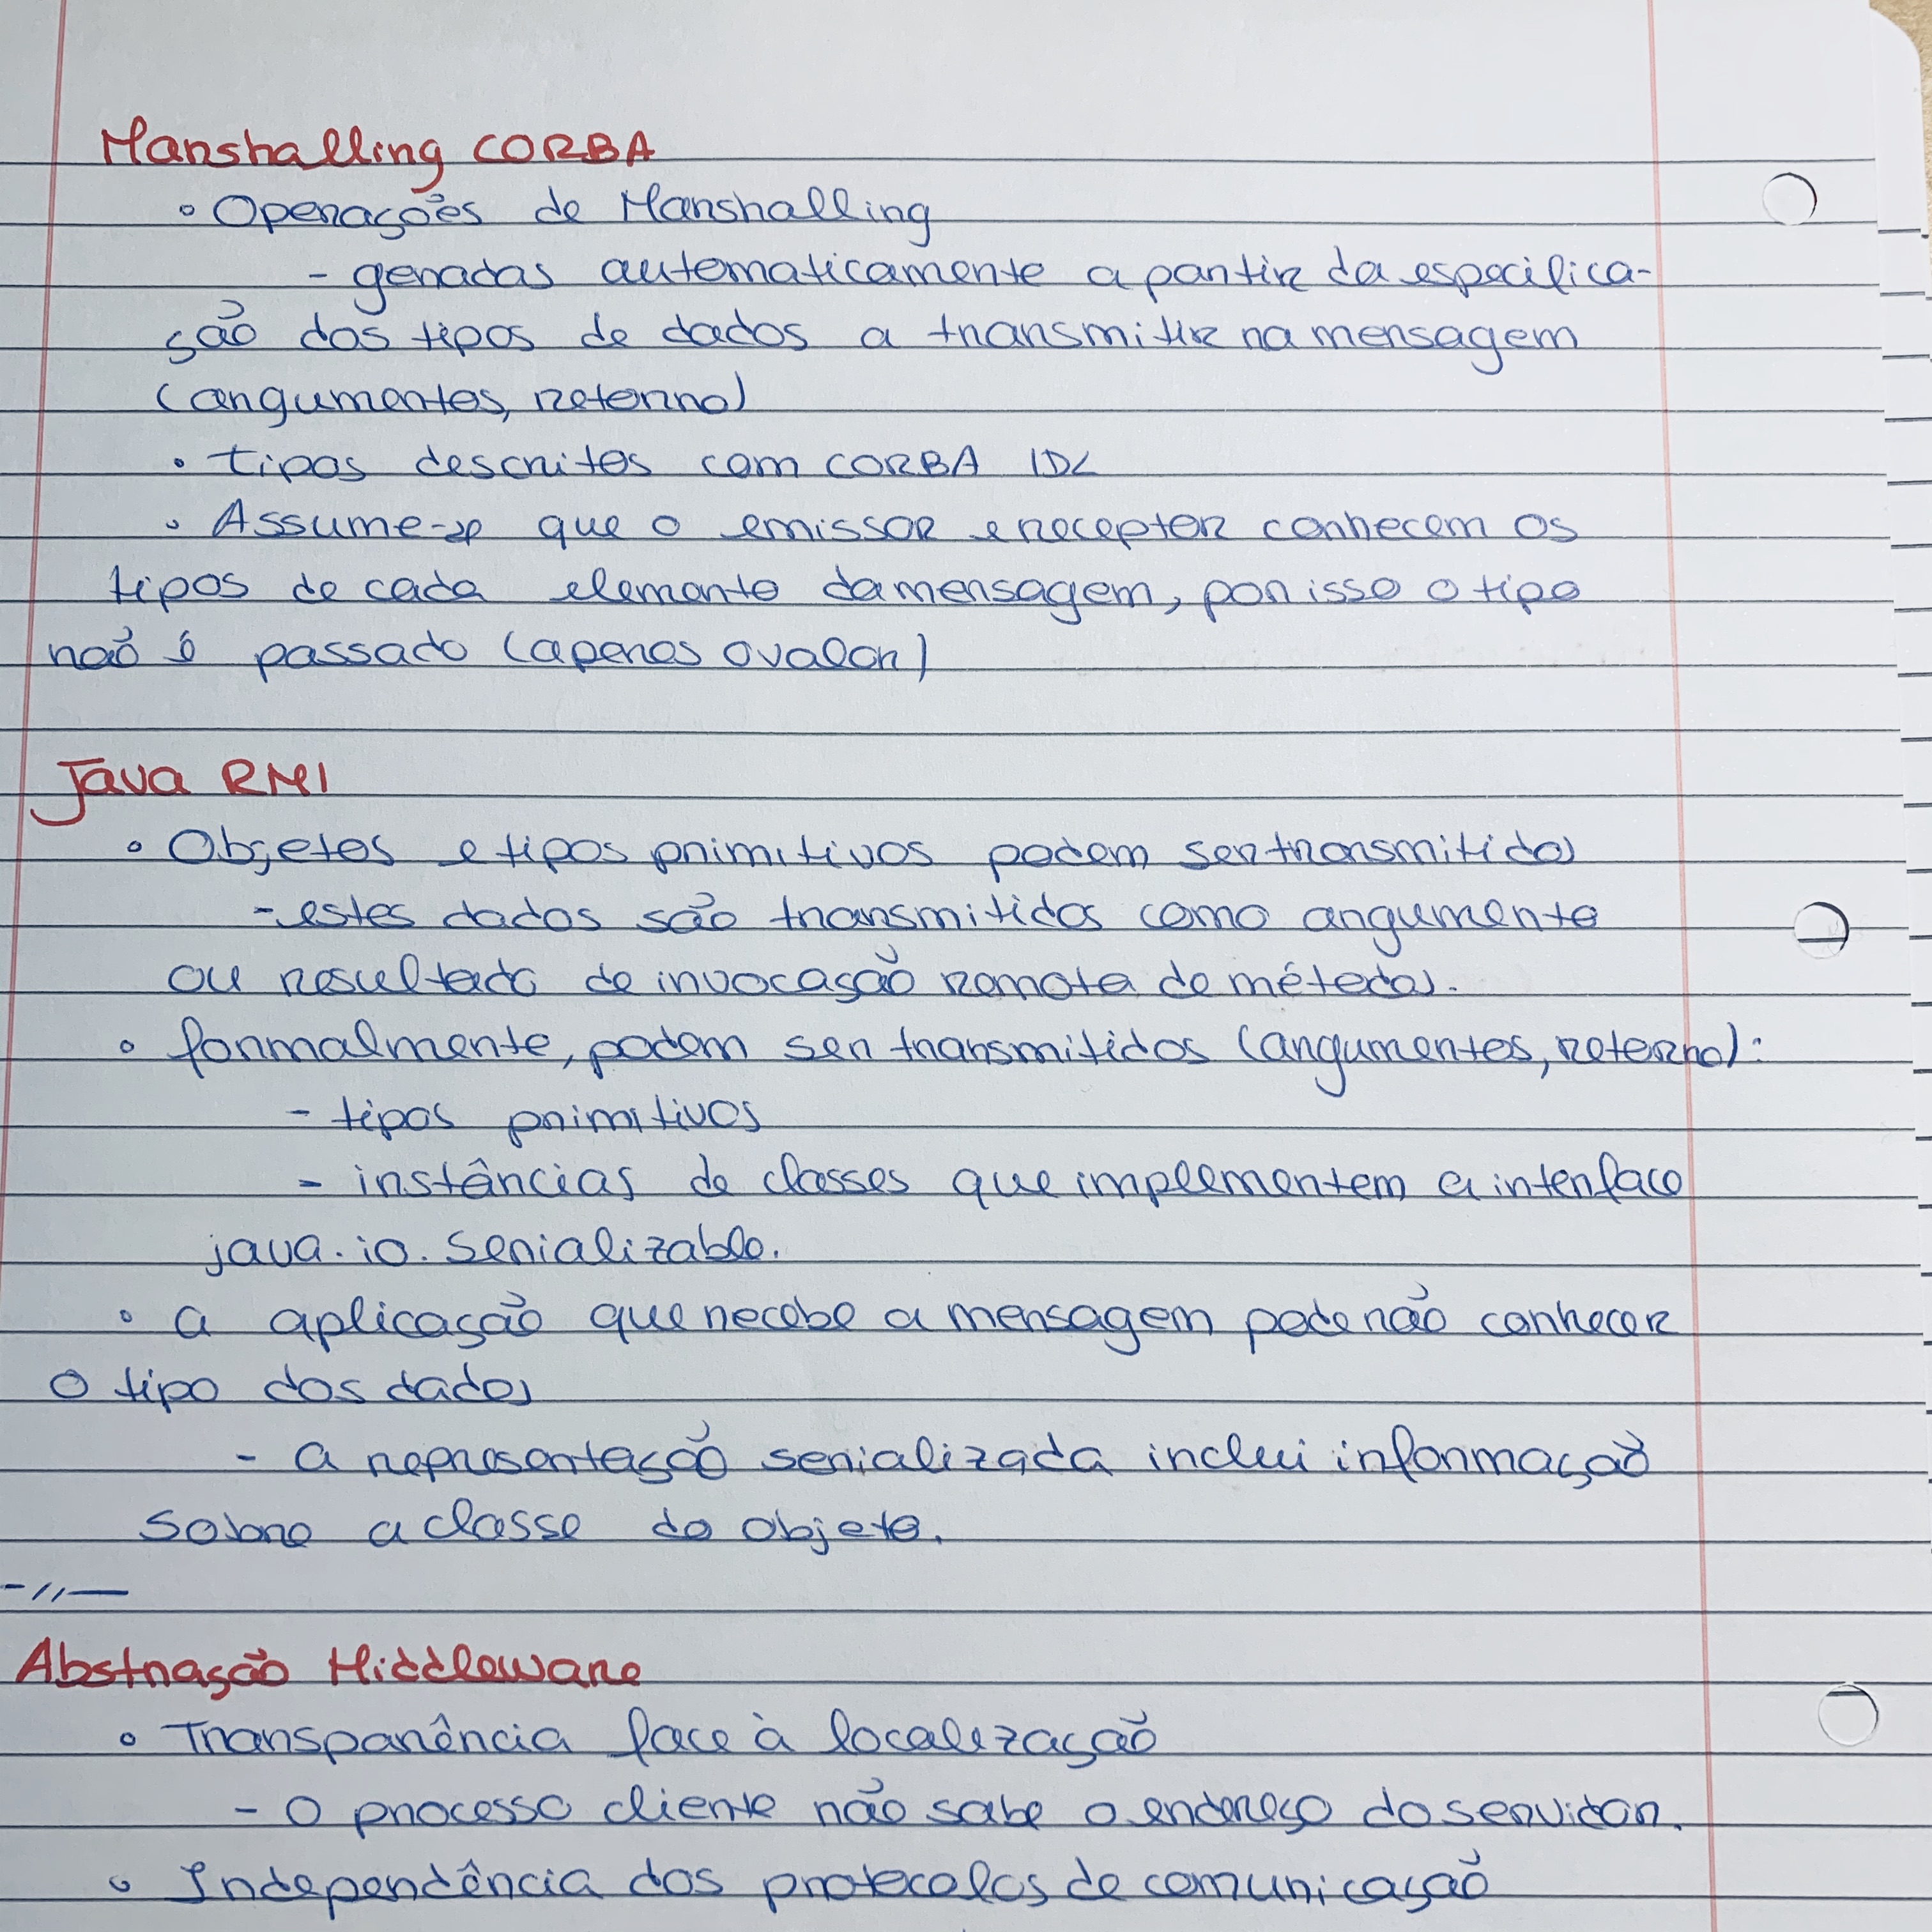 Marshalling CORBA
• Operações de Marshalling
- geradas automaticamente a partir da especifica-
ção dos tipos de dados a transmitir na mensagem
(argumentos, retorno)
• tipos descritos com CORBA IDL
• Assume-se que o emissor e receptor conhecem os
tipos de cada elemento da mensagem, por isso o tipo
não é passado (apenas o valor)
Java RMI
• Objetos e tipos primitivos podem ser transmitidos
- estes dados são transmitidos como argumento
ou resultado de invocação remota de métodos.
• formalmente, podem ser transmitidos (argumentos, retorno):
- tipos primitivos
- instâncias de classes que implementem a interface
java.io.Serializable.
• a aplicação que recebe a mensagem pode não conhecer
o tipo dos dados
- a representação serializada inclui informação
sobre a classe do objeto.
-//-
Abstração Middleware
• Transparência face à localização
- O processo cliente não sabe o endereço do servidor.
• Independência dos protocolos de comunicação